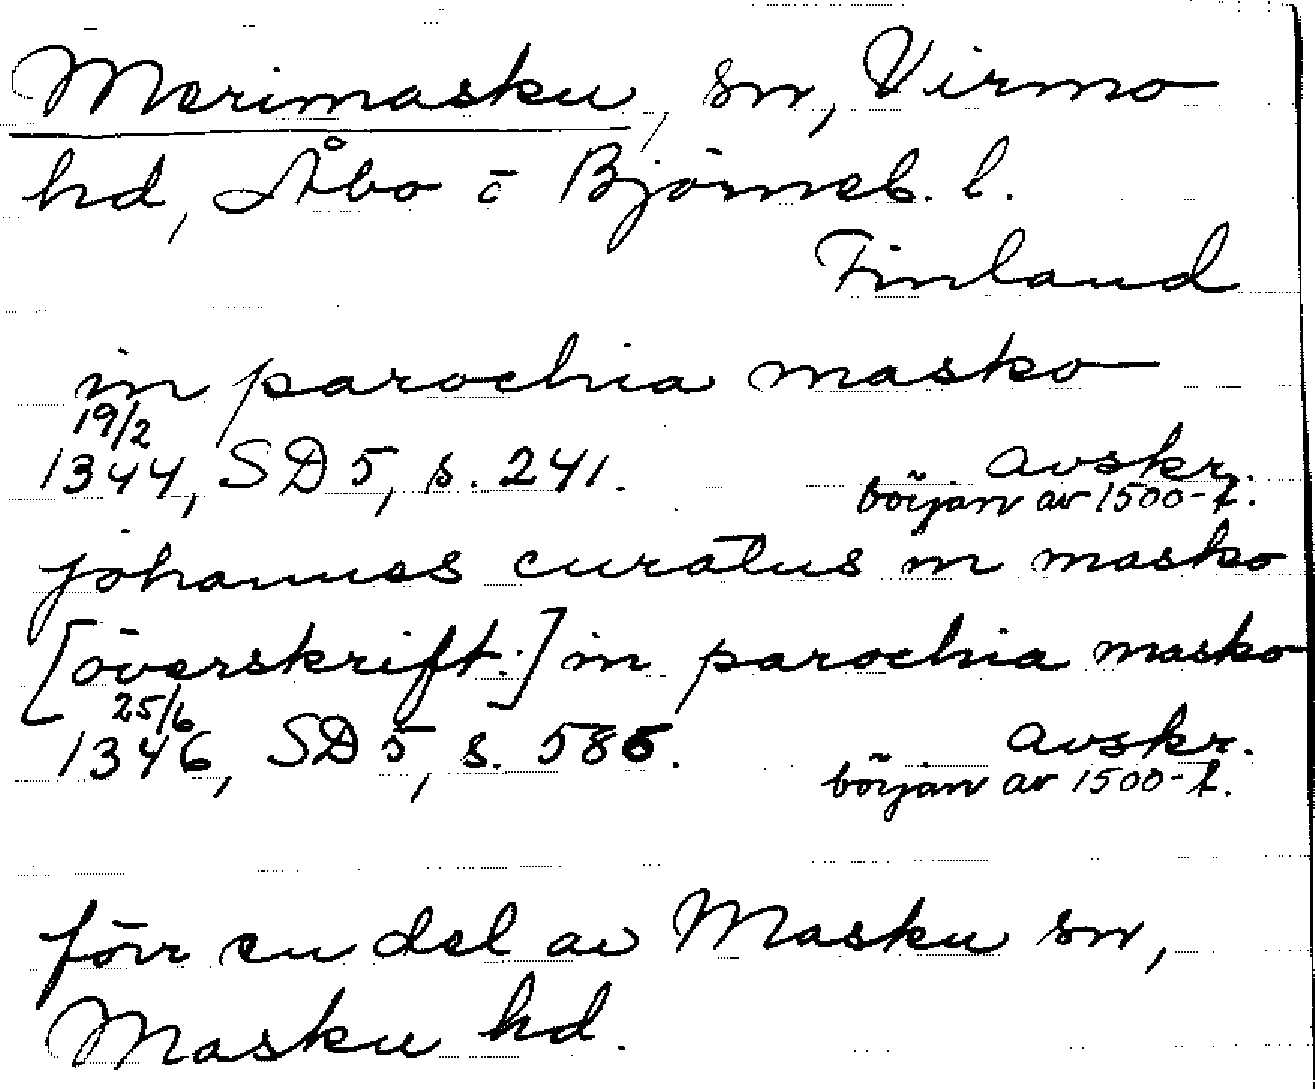 Merimasku, sn, Virmo
hd, Åbo o Björneb. l.
Finland
in parochia masko
19/2
1344, SD 5, s. 241. avskr.
början av 1500-t.
johannes curatus in masko
[överskrift:] in parochia masko
25/6
1346, SD 5, s. 586. avskr.
början av 1500-t.
förr en del av Masku sn,
Masku hd.